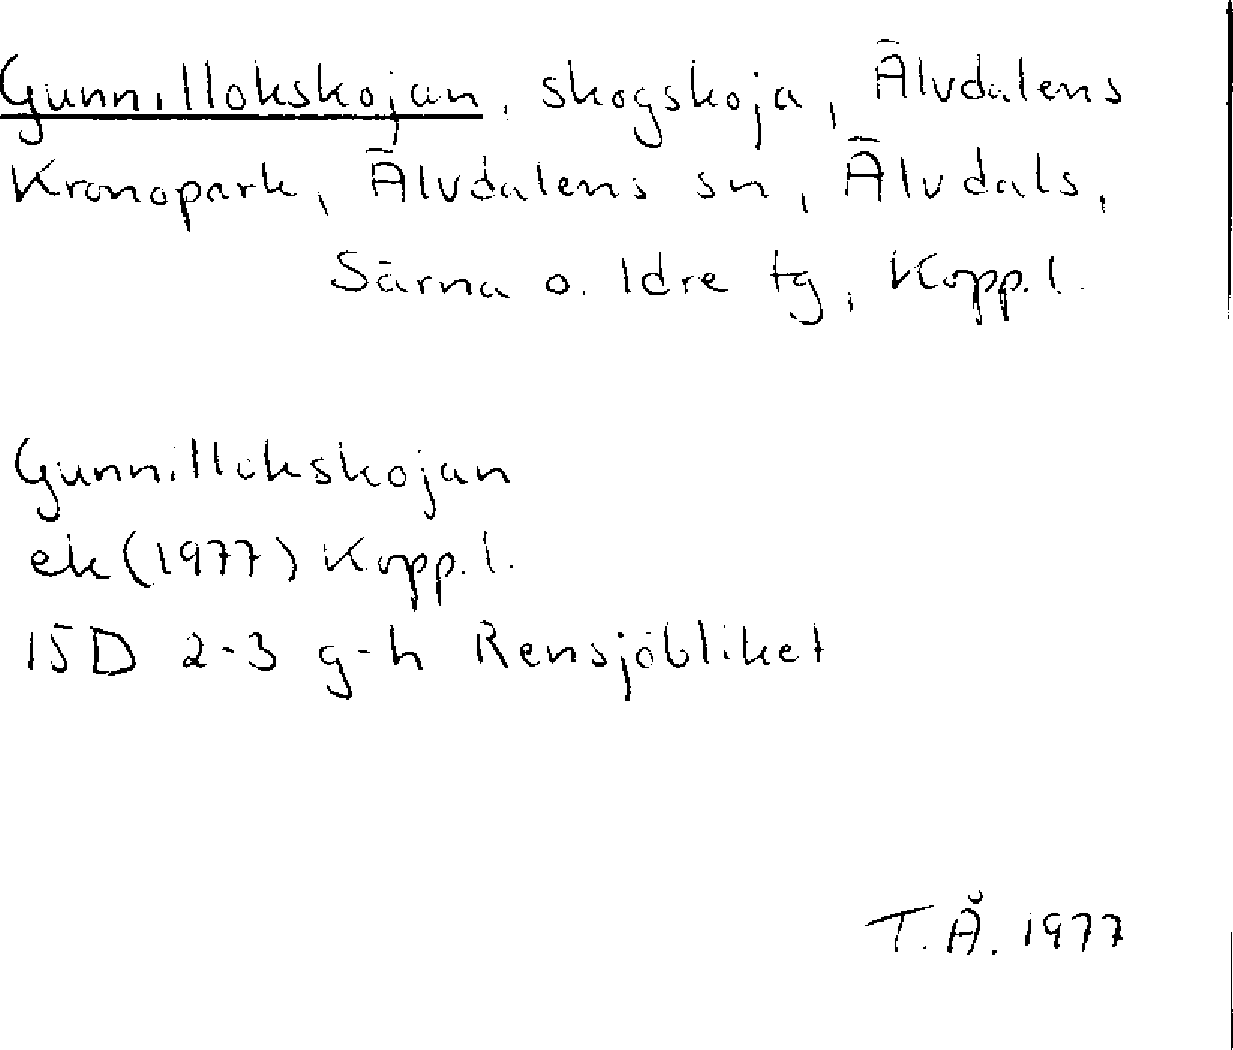 Gunnillokskojan, skogskoja, Älvdalens
Kronopark, Älvdalens sn, Älvdals,
Särna o. Idre tg, Kopp.l.
Gunnillokskojan
ek(1977) Kopp.l.
15D 2-3 g-h Rensjöbliket
T.Å. 1977